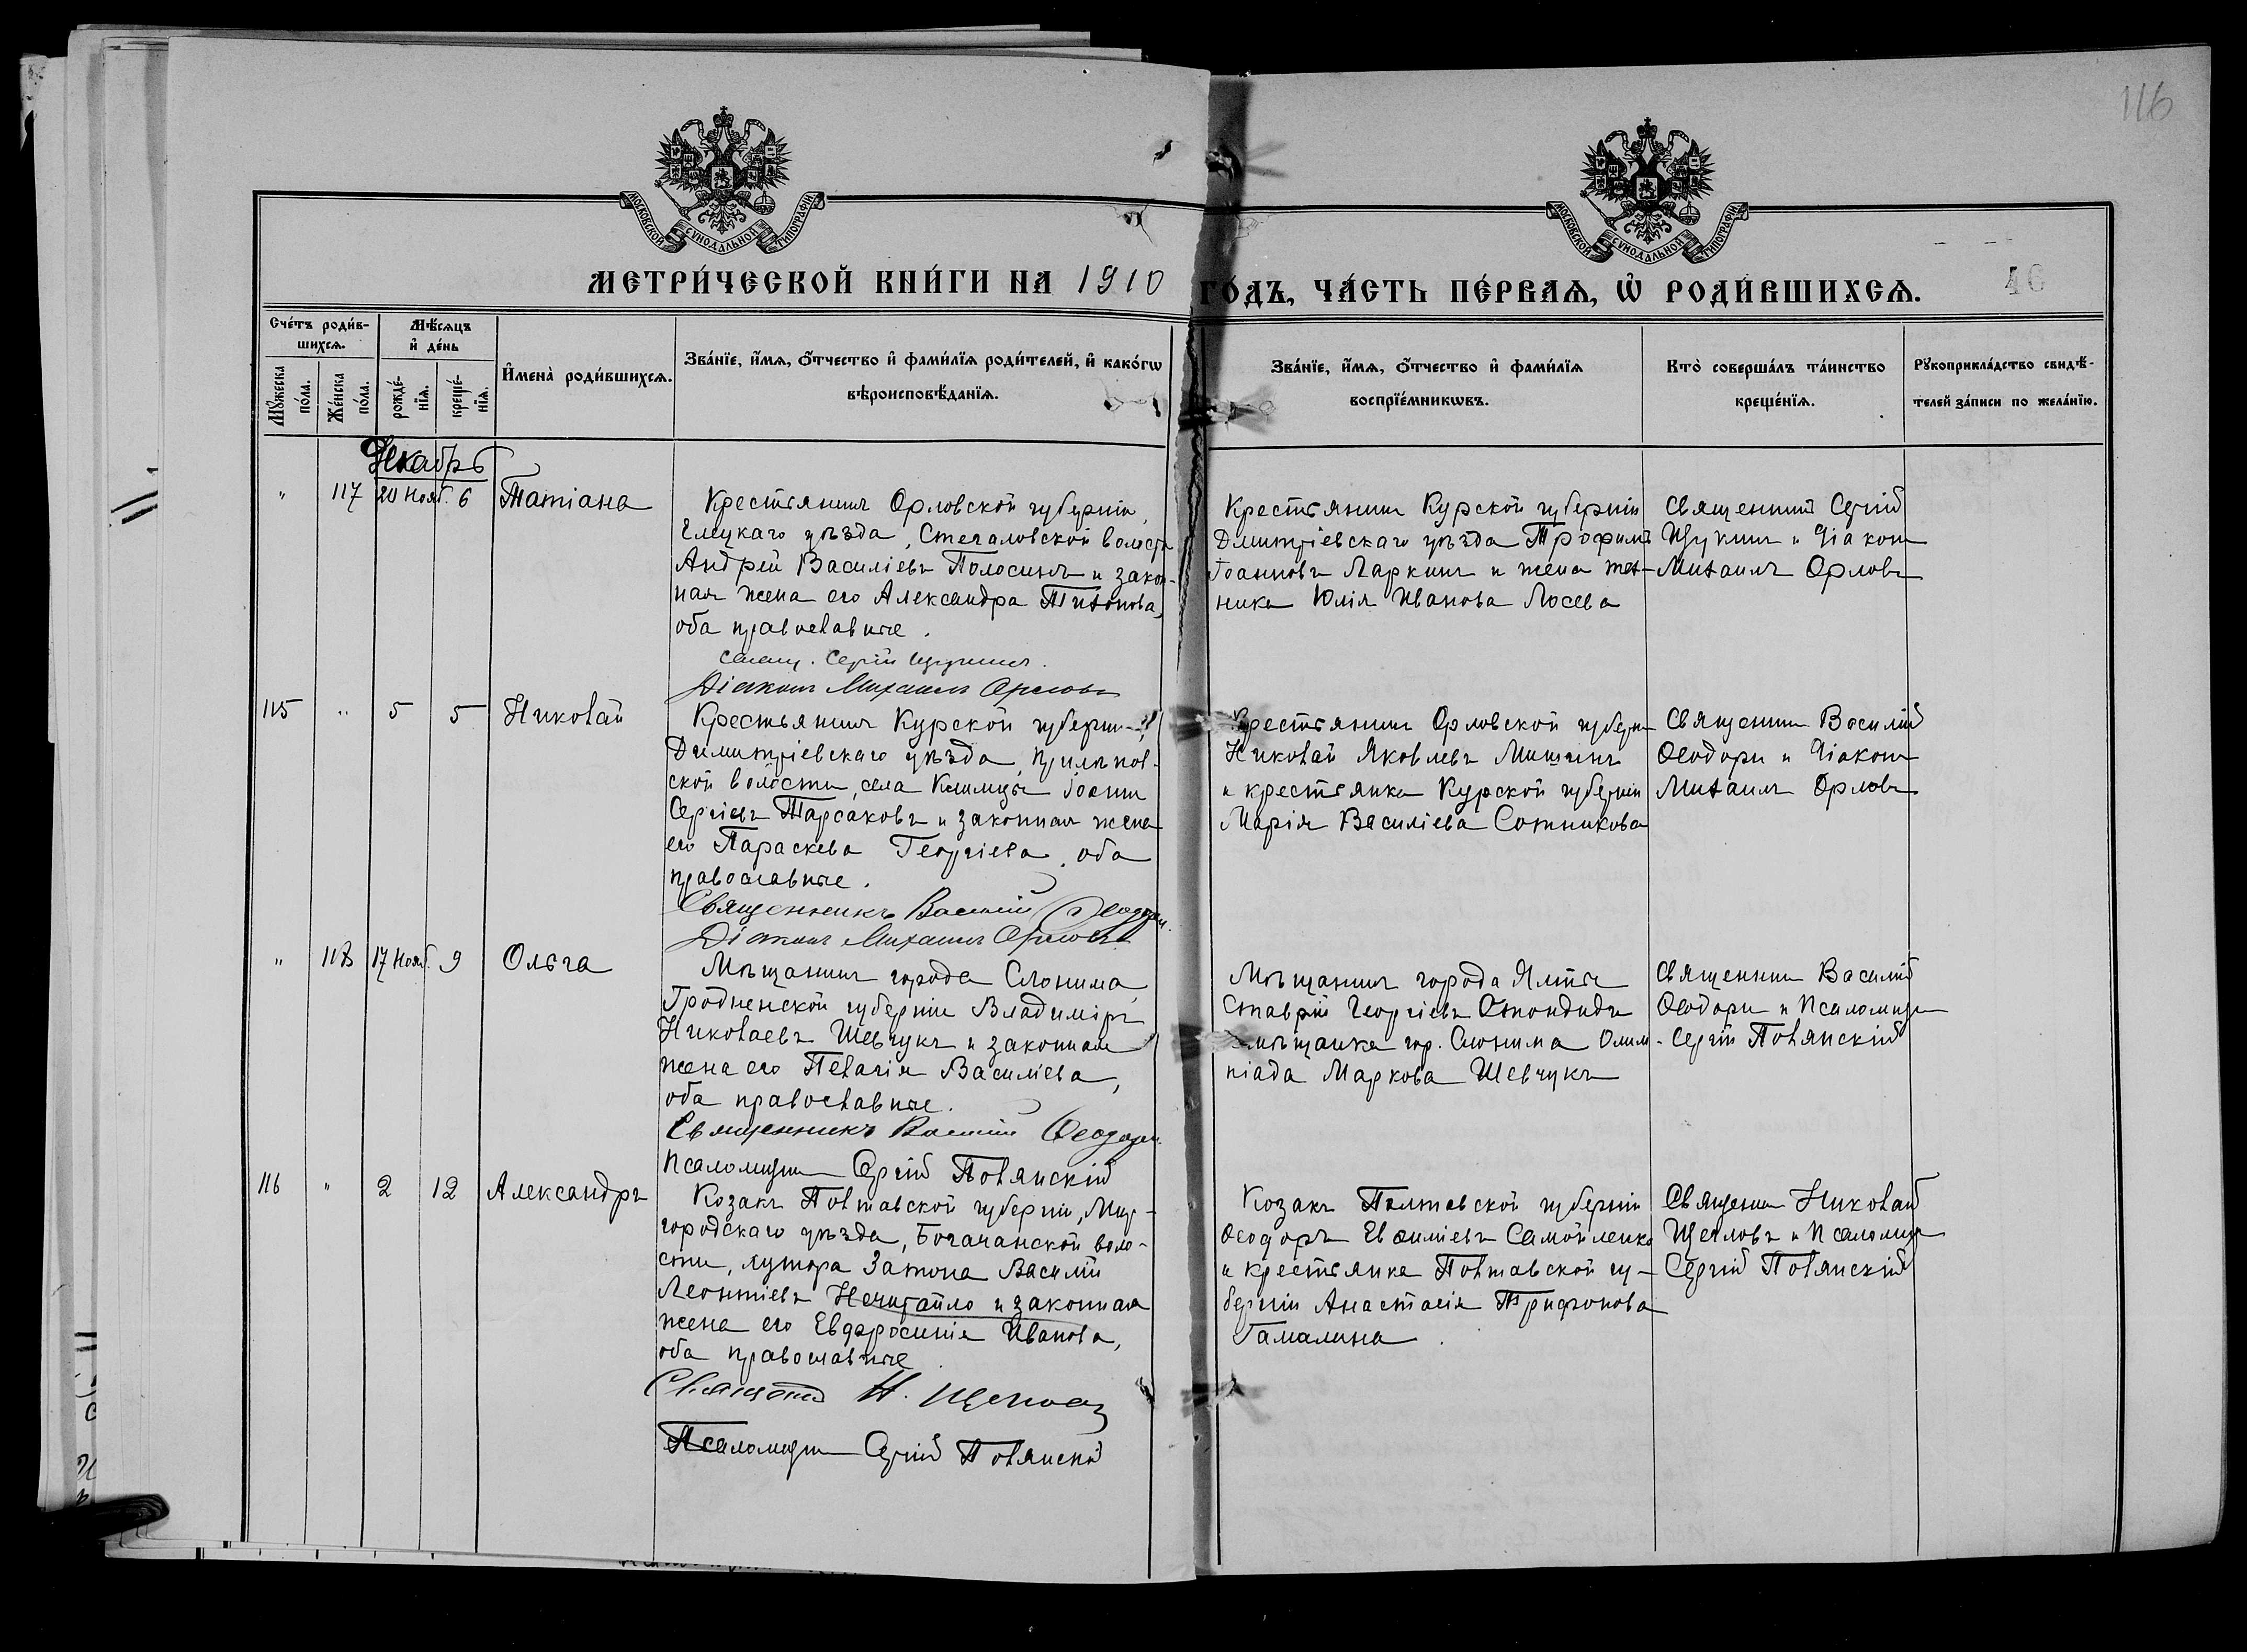 116
МОСКОВСКОЙ СѴНОДАЛЬНОЙ ТИПОГРАФІИ
МОСКОВСКОЙ СѴНОДАЛЬНОЙ ТИПОГРАФІИ
МЕТРИ́ЧЕСКОЙ КНИ́ГИ НА 1910 ГО́ДЪ, ЧА́СТЬ ПЕ́РВАѦ, Ѡ҆ РОДИ́ВШИХСѦ.
46
Сче́тъ роди́в-
шихсѧ.
Мꙋ́жеска
по́ла.
Же́нска
по́ла.
Мѣ́сѧцъ
и҆ де́нь
рожде́-
нїѧ.
креще́-
нїѧ.
И҆мена̀ роди́вшихсѧ.
Зва́нїе, и҆́мѧ, ѻ҆́тчество и҆ фами́лїѧ роди́телей, и҆ како́гѡ
вѣроисповѣ́данїѧ.
Зва́нїе, и҆́мѧ, ѻ҆́тчество и҆ фами́лїѧ
воспрїе́мникѡвъ.
Кто̀ соверша́лъ та́инство
креще́нїѧ.
Рꙋкоприкла́дство свидѣ́-
телей за́писи по жела́нїю.
Декабрь
" 117 20 Нояб. 6 Татіана
Крестьянинъ Орловской губерніи,
Елецкаго уѣзда, Стегаловской волости
Андрей Василіевъ Полосинъ и закон-
ная жена его Александра Тихонова,
оба православные.
свящ. Сергій Щукинъ.
Діаконъ Михаилъ Орловъ
Крестьянинъ Курской губерніи
Дмитріевскаго уѣзда Трофимъ
Іоанновъ Ларкинъ и жена тех-
ника Юлія Иванова Лосева
Священникъ Сергій
Щукинъ и Діаконъ
Михаилъ Орловъ
115 " 5 5 Николай
Крестьянинъ Курской губерніи,
Димитріевскаго уѣзда,
ской волости, села Іоаннъ
Сергіевъ Тарсаковъ и законная жена
его Параскева Георгіева, оба
православные.
Священникъ Василій Ѳеодори.
Діаконъ Михаилъ Орловъ
Крестьянинъ Орловской губерніи
Николай Яковлевъ Мишинъ
и крестьянка Курской губерніи
Марія Василіева Сотникова
Священникъ Василій
Ѳеодори и Діаконъ
Михаилъ Орловъ
" 118 17 Нояб. 9 Ольга
Мѣщанинъ города Слонима,
Гродненской губерніи Владиміръ
Николаевъ Шевчукъ и законная
жена его Пелагія Василіева,
оба православные.
Священникъ Василій Ѳеодори.
Псаломщикъ Сергій Полянскій
Мѣщанинъ города Ялты
Ставрій Георгіевъ
и мѣщанка гор. Слонима Олим-
піада Маркова Шевчукъ
Священникъ Василій
Ѳеодори и Псаломщикъ
Сергій Полянскій
116 " 2 12 Александръ
Козакъ Полтавской губерніи, Мир-
городскаго уѣзда, Богачанской воло-
сти, хутора Затона Василій
Леонтіевъ Нечитайло и законная
жена его Евфросинія Иванова,
оба православные
Священникъ Н. Щегловъ
Псаломщикъ Сергій Полянскій
Козакъ Полтавской губерніи
Ѳеодоръ Евѳиміевъ Самойленко
и крестьянка Полтавской гу-
берніи Анастасія Трифонова
Гамалина.
Священникъ Николай
Щегловъ и Псаломщикъ
Сергій Полянскій